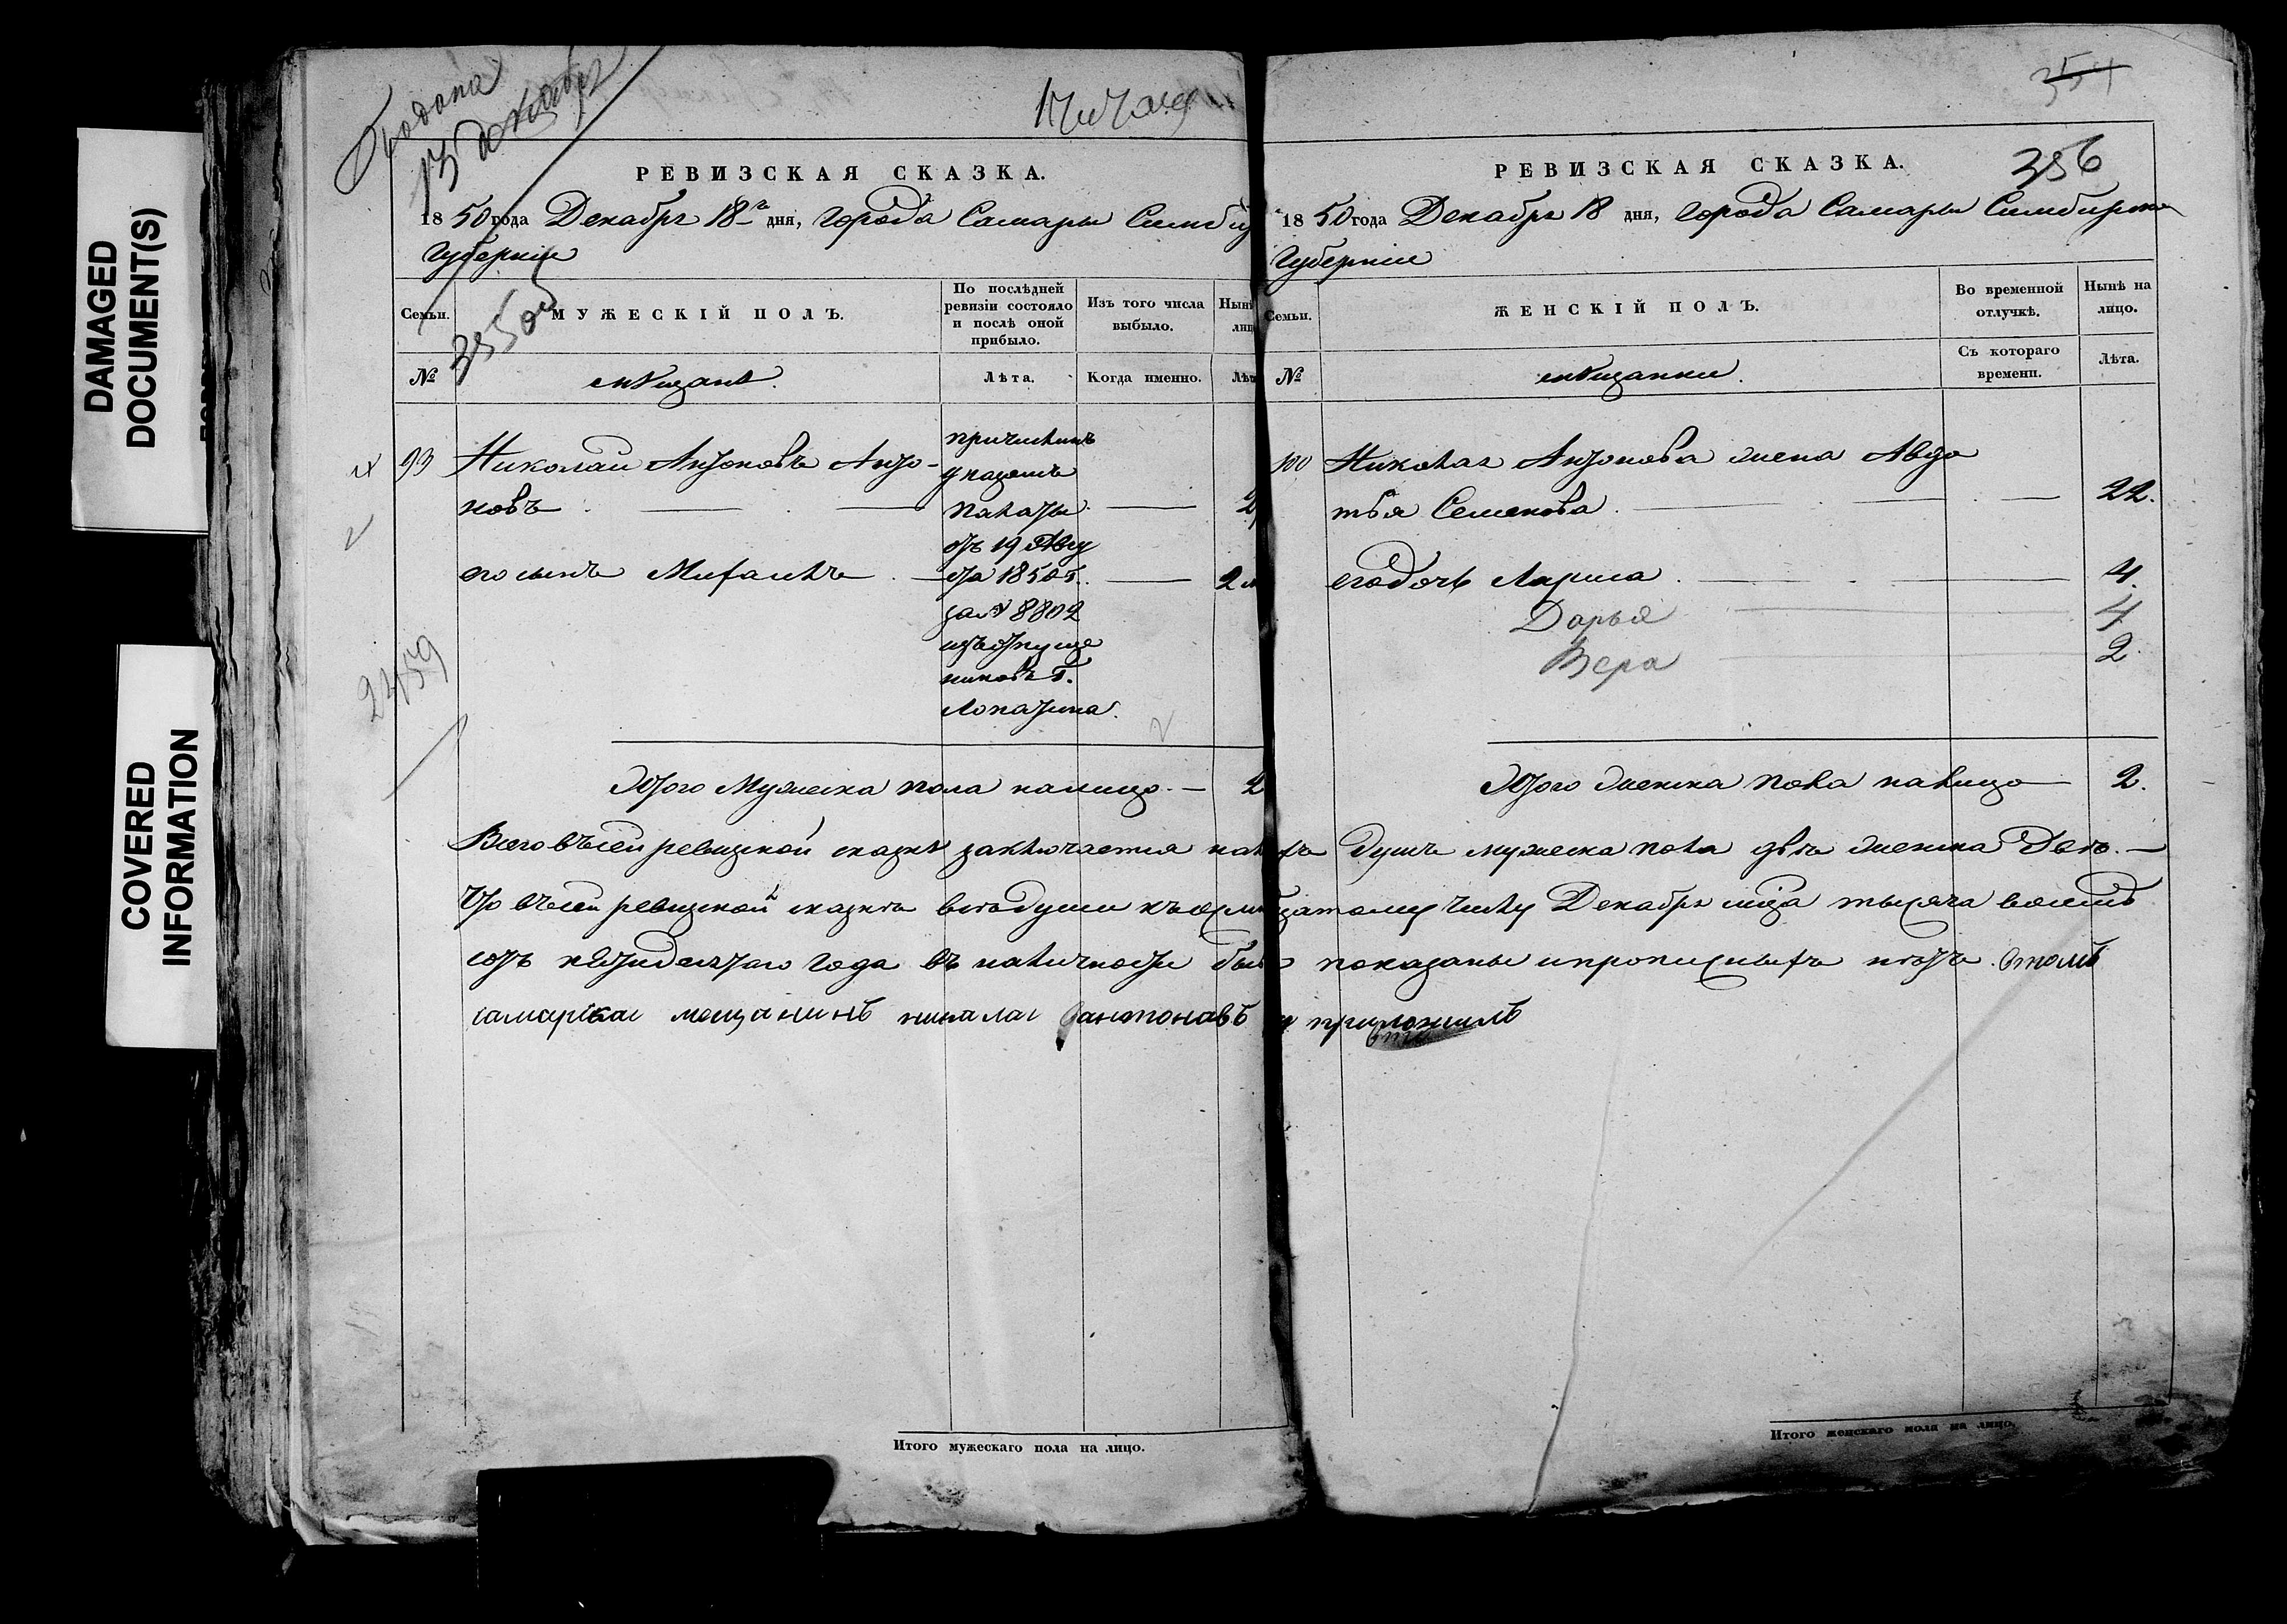 Подана
13 декабря
Читалъ
354
356
DAMAGED
DOCUMENT(S)
COVERED
INFORMATION
РЕВИЗСКАЯ СКАЗКА.
1850 года Декабря 18го дня, города Самары Симбир
Губерніи
355 об
Семьи.
МУЖЕСКІЙ ПОЛЪ.
По послѣдней ревизіи состояло и послѣ оной прибыло.
Изъ того числа выбыло.
Нынѣ
№
мѣщане.
Лѣта.
Когда именно.
93 Николай Антоновъ Анто-
новъ
его сынъ Михаилъ 2
причисленъ
указомъ
палаты
отъ 19 Авгу
ста 1850 г.
за № 8802
изъ отпуще
никовъ г.
Лопатина.
2459
Итого Мужеска пола налицо — 2
РЕВИЗСКАЯ СКАЗКА.
1850 года Декабря 18 дня, города Самары Симбирской
Губерніи
Семьи.
ЖЕНСКІЙ ПОЛЪ.
Во временной отлучкѣ.
Нынѣ на лицо.
№
мѣщанки.
Съ котораго времени.
Лѣта.
100 Николая Антонова жена Авдо
тья Семенова. 22.
его дочь Лариса 4.
Дарья 4
Вера 2
Итого женска пола налицо — 2.
Всего въ сей ревизской сказкѣ заключается налицо душъ мужеска пола двѣ женска двѣ. —
Что въ сей ревизской сказкѣ всѣ души къ осмнадцатому числу Декабря мѣсяца тысяча восемь
сотъ пятидесятаго года въ наличности бывшія показаны и прописныхъ нѣтъ. втомъ
самарскаі мещанинъ никалаі антонавъ приложилъ
Итого мужескаго пола на лицо.
Итого женскаго пола на лицо.